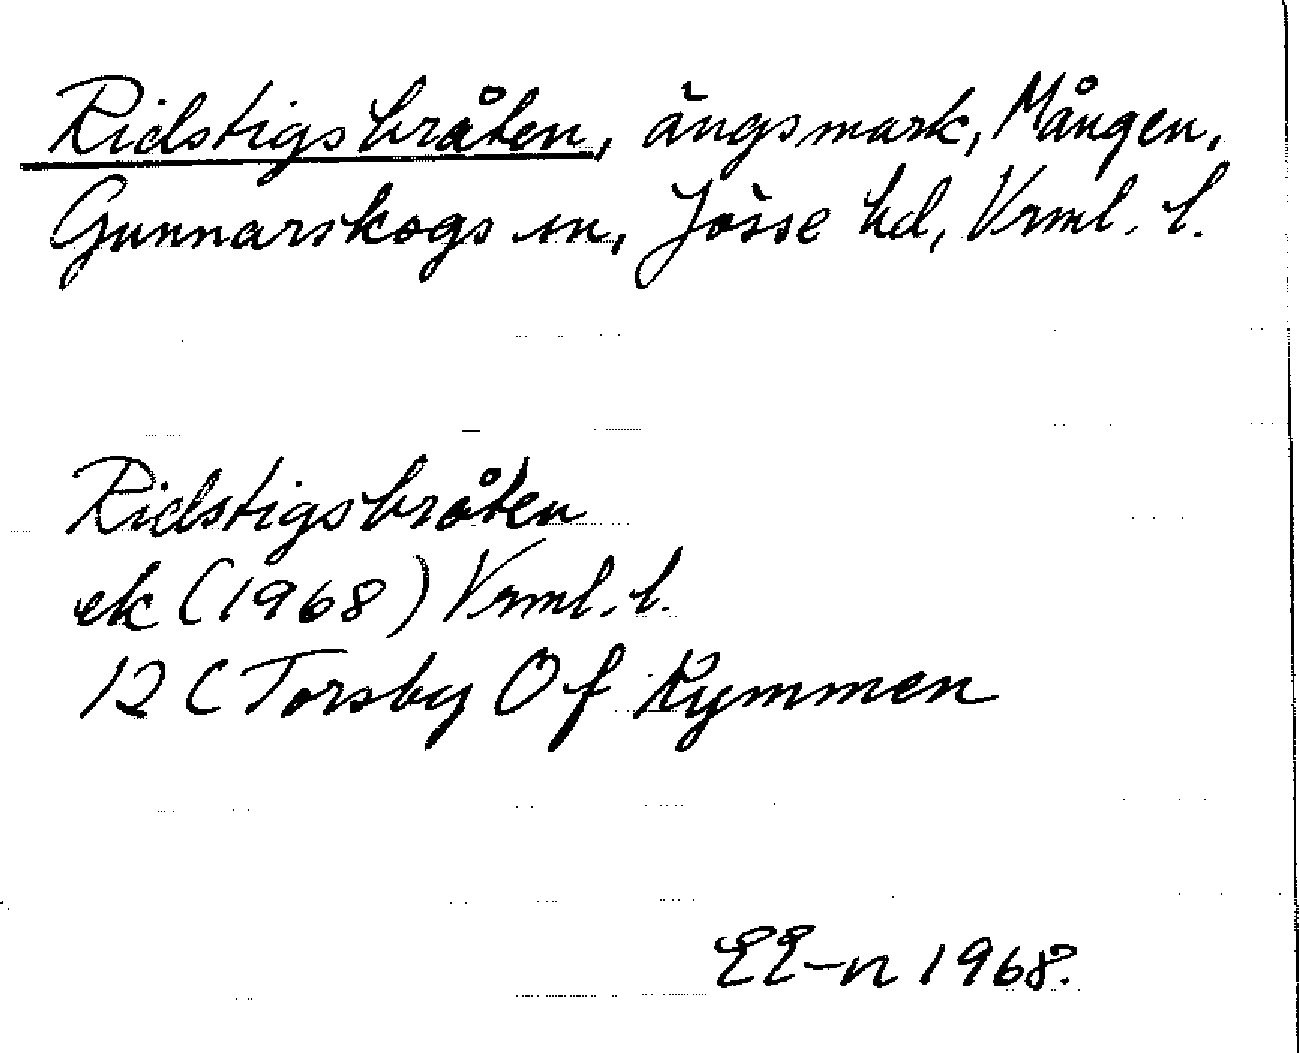 Ridstigsbråten, ängsmark, Mången,
Gunnarskogs sn, Jösse hd, Vrml. l.
Ridstigsbråten
ek (1968) Vrml. l.
12 C Torsby 0 f Rymmen
EE-n 1968.